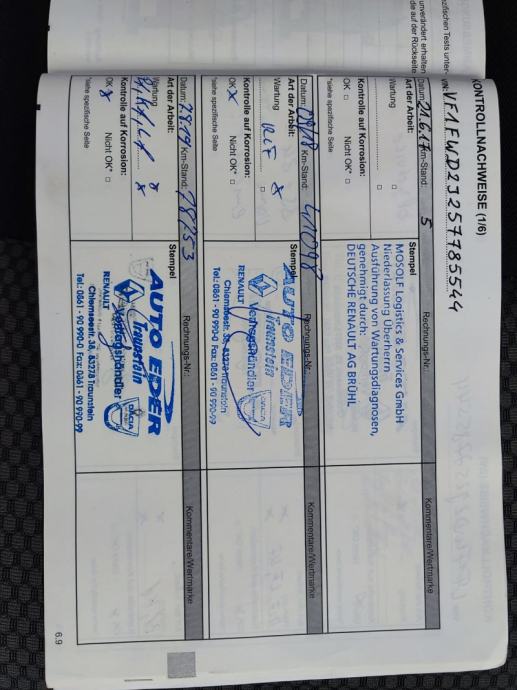 zifischen Tests unter-
unverändert erhalten
die auf der Rückseite
KONTROLLNACHWEISE (1/6)
VIN: VF1FWD2J257785544
Datum: 21.6.17 Km-Stand: 5
Art der Arbeit:
Wartung
Kontrolle auf Korrosion:
OK Nicht OK*
*siehe spezifische Seite
Stempel
Rechnungs-Nr.:
MOSOLF Logistics & Services GmbH
Niederlassung Überherrn
Ausführung von Wartungsdiagnosen,
genehmigt durch:
DEUTSCHE RENAULT AG BRÜHL
Kommentare/Wertmarke
Datum: Km-Stand:
Art der Arbeit:
Wartung
Kontrolle auf Korrosion:
OK Nicht OK*
*siehe spezifische Seite
Stempel
Rechnungs-Nr.:
AUTO EDER
Traunstein
Vertragshändler
RENAULT
Chiemseestr. 38, 83278 Traunstein
Tel.: 0861 - 90 990-0 Fax: 0861 - 90 990-99
Kommentare/Wertmarke
Datum: Km-Stand: 78253
Art der Arbeit:
Wartung
Kontrolle auf Korrosion:
OK Nicht OK*
*siehe spezifische Seite
Stempel
Rechnungs-Nr.:
AUTO EDER
Traunstein
Vertragshändler
RENAULT
DACIA
Chiemseestr. 38, 83278 Traunstein
Tel.: 0861 - 90 990-0 Fax: 0861 - 90 990-99
Kommentare/Wertmarke
6.9